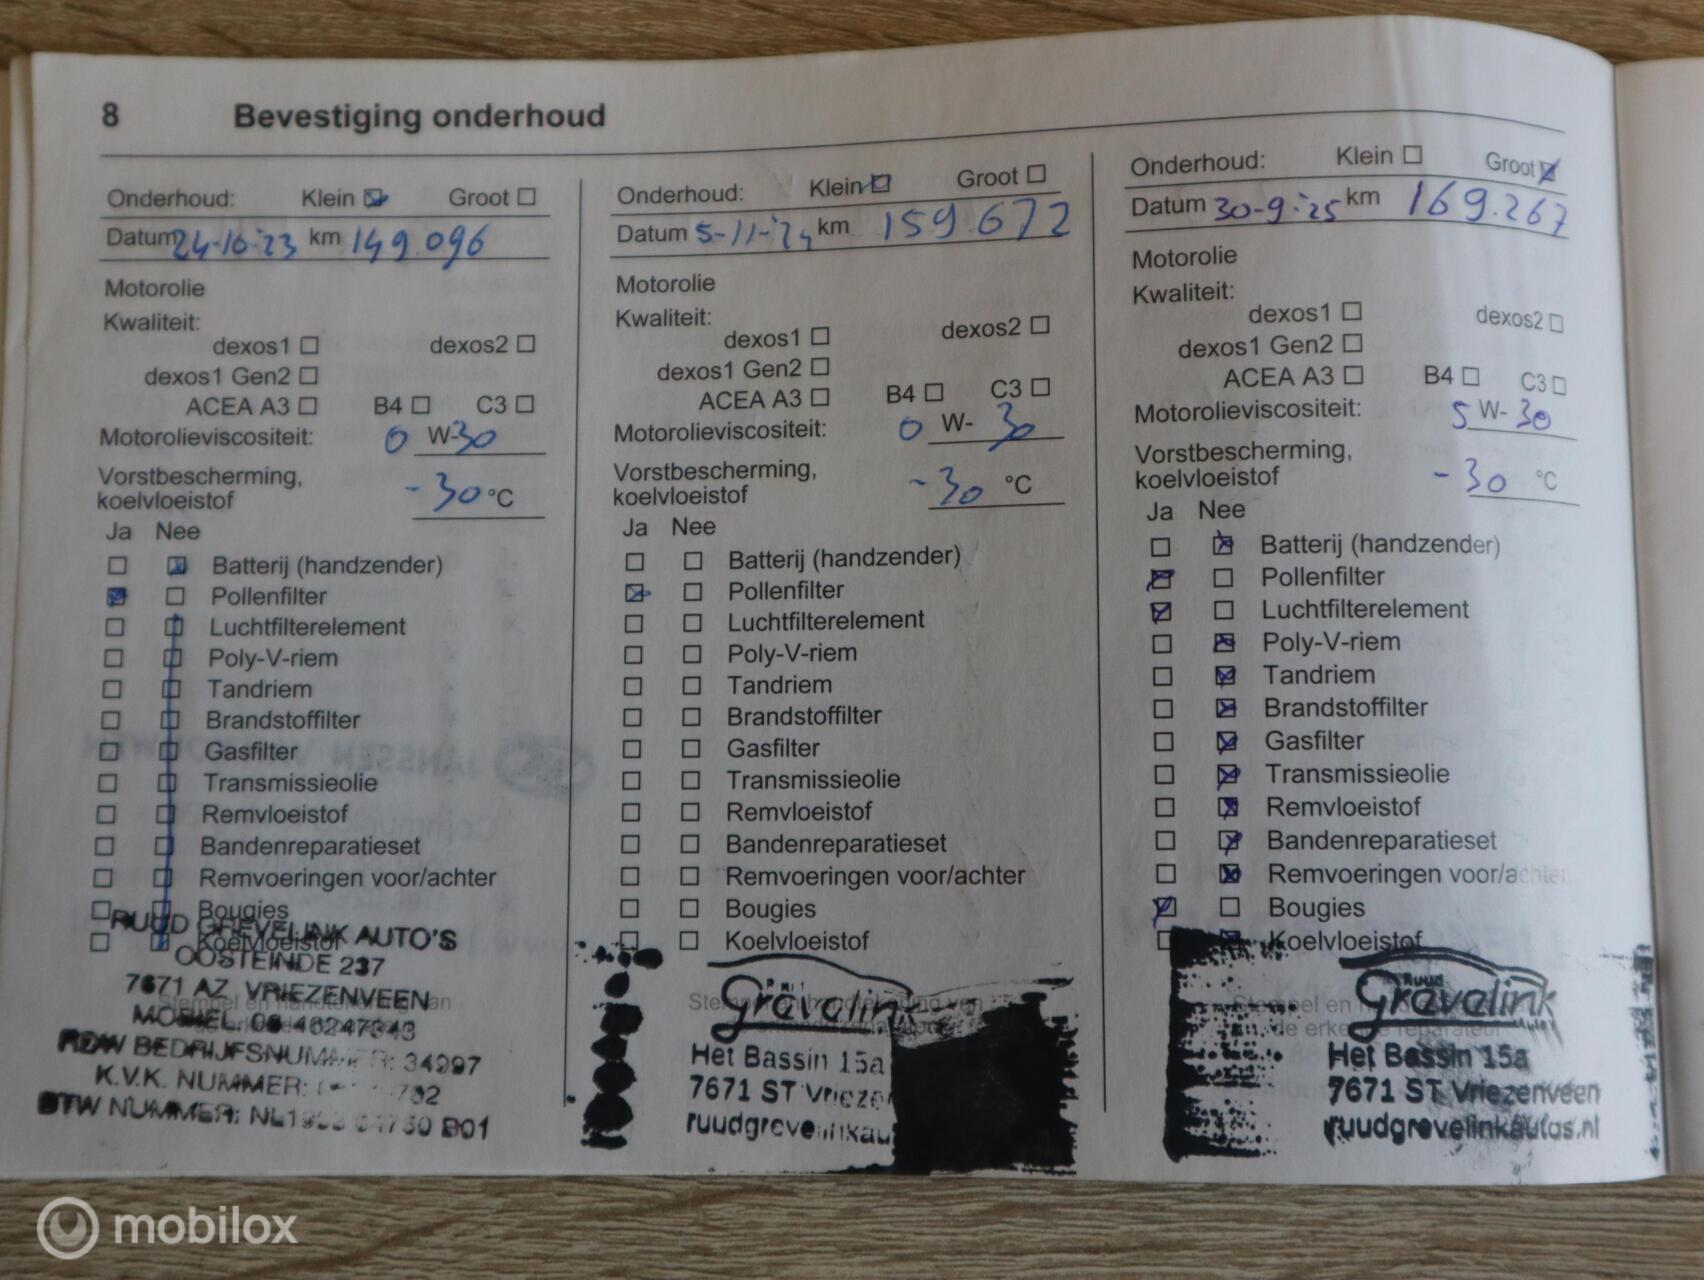 8 Bevestiging onderhoud
Onderhoud: Klein Groot
Datum 24-10-'23 km 149.096
Motorolie
Kwaliteit:
dexos1 dexos2
dexos1 Gen2
ACEA A3 B4 C3
Motorolieviscositeit: 0 W-30
Vorstbescherming,
koelvloeistof -30 °C
Ja Nee
Batterij (handzender)
Pollenfilter
Luchtfilterelement
Poly-V-riem
Tandriem
Brandstoffilter
Gasfilter
Transmissieolie
Remvloeistof
Bandenreparatieset
Remvoeringen voor/achter
Bougies
Koelvloeistof
RUUD GREVELINK AUTO'S
OOSTEINDE 237
7671 AZ VRIEZENVEEN
Stempel en handtekening van
MOBIEL 06 46247343
RDW BEDRIJFSNUMMER: 34997
K.V.K. NUMMER: 702
BTW NUMMER: B01
Onderhoud: Klein Groot
Datum 5-11-'24 km 159.672
Motorolie
Kwaliteit:
dexos1 dexos2
dexos1 Gen2
ACEA A3 B4 C3
Motorolieviscositeit: 0 W-30
Vorstbescherming,
koelvloeistof -30 °C
Ja Nee
Batterij (handzender)
Pollenfilter
Luchtfilterelement
Poly-V-riem
Tandriem
Brandstoffilter
Gasfilter
Transmissieolie
Remvloeistof
Bandenreparatieset
Remvoeringen voor/achter
Bougies
Koelvloeistof
Stempel en handtekening van
Grevelink
Het Bassin 15a
7671 ST
Onderhoud: Klein Groot
Datum 30-9-'25 km 169.267
Motorolie
Kwaliteit:
dexos1 dexos2
dexos1 Gen2
ACEA A3 B4 C3
Motorolieviscositeit: 5 W-30
Vorstbescherming,
koelvloeistof -30 °C
Ja Nee
Batterij (handzender)
Pollenfilter
Luchtfilterelement
Poly-V-riem
Tandriem
Brandstoffilter
Gasfilter
Transmissieolie
Remvloeistof
Bandenreparatieset
Remvoeringen voor/achter
Bougies
Koelvloeistof
Ruud
Grevelink
Stempel en
de erkende reparateur
Het Bassin 15a
7671 ST Vriezenveen
ruudgrevelinkautos.nl
mobilox